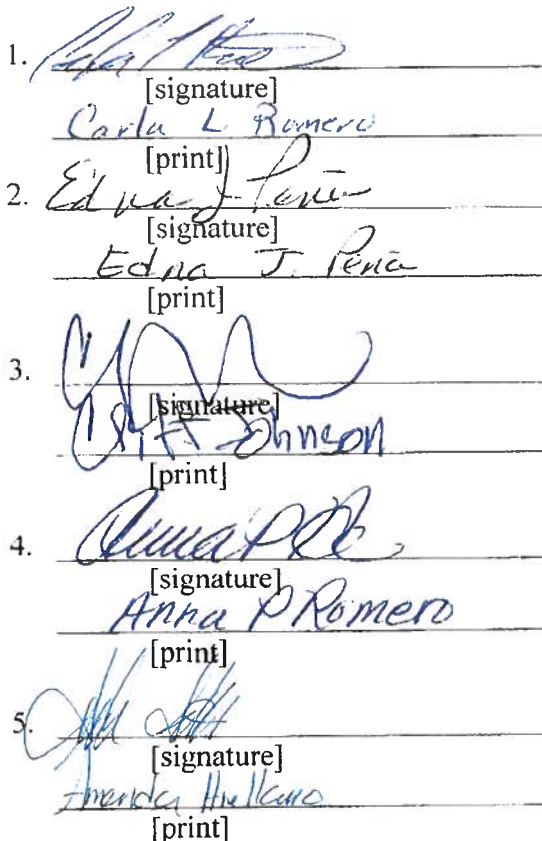 1.
[signature]
Carla L Romero
[print]
2. Edna J Peña
[signature]
Edna J. Peña
[print]
3.
[signature]
Johnson
[print]
4. Anna P
[signature]
Anna P Romero
[print]
5.
[signature]
Amanda Arellano
[print]